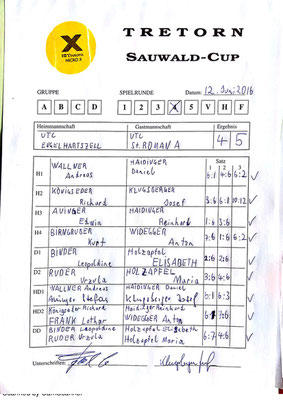 X
TRETORN
MICRO X
SAUWALD-CUP
GRUPPE SPIELRUNDE Datum: 12. Juni 2016
A B C D 1 2 3 X 5 V H F
Heimmannschaft Gastmannschaft Ergebnis
UTC UTC 4 5
ENGELHARTSZELL St. ROMAN A
Satz
WALLNER HAIDINGER 1 2 3
H1 Andreas Daniel 6:1 4:6 6:2
KÖNIGSEDER KLUGSBERGER
H2 Richard Josef 3:6 6:1 10:12
AUINGER HAIDINGER
H3 Edwin Reinhard 1:6 3:6
BIRNGRUBER WIDEGGER
H4 Kurt Anton 7:6 1:6 6:2
BINDER Holzapfel
D1 Leopoldine ELISABETH 2:6 2:6
RUDER HOLZAPFEL
D2 Ursula Maria 3:6 4:6
WALLNER Andreas HAIDINGER Daniel
HD1 Auinger Klugsberger Josef 6:1 6:3
Königseder Richard Haidinger Reinhard
HD2 FRANK Lothar WIDEGGER Anton 6:1 7:6
BINDER Leopoldine Holzapfel Elisabeth
DD RUDER Ursula Holzapfel Maria 6:7 4:6
Unterschriften: